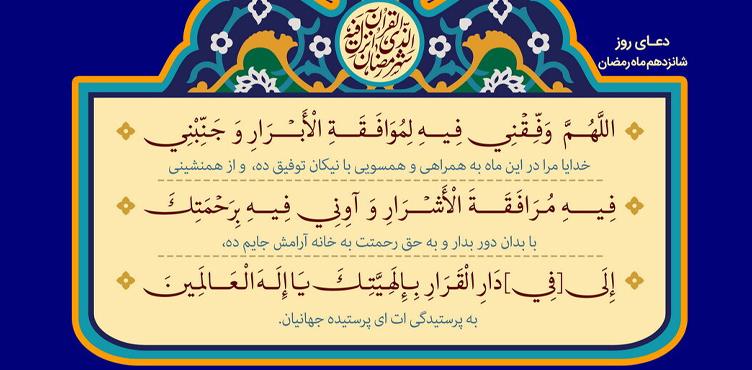 شهر رمضان
الذي أنزل فيه
القرآن
دعـای روز
شانزدهم ماه رمضان
اللَّهُـمَّ وَفِّقْنِي فِيـهِ لِمُوَافَقَـةِ الْأَبْـرَارِ وَ جَنِّبْنِي
خدایا مرا در این ماه به همراهی و همسویی با نیکان توفیق ده، و از همنشینی
فِيـهِ مُرَافَقَـةَ الْأَشْـرَارِ وَ آوِنِي فِيـهِ بِرَحْمَتِكَ
با بدان دور بدار و به حق رحمتت به خانه آرامش جایم ده،
إِلَى [فِي] دَارِ الْقَرَارِ بِإِلَهِيَّتِكَ يَا إِلَهَ الْعَالَمِينَ
به پرستیدگی ات ای پرستیده جهانیان.